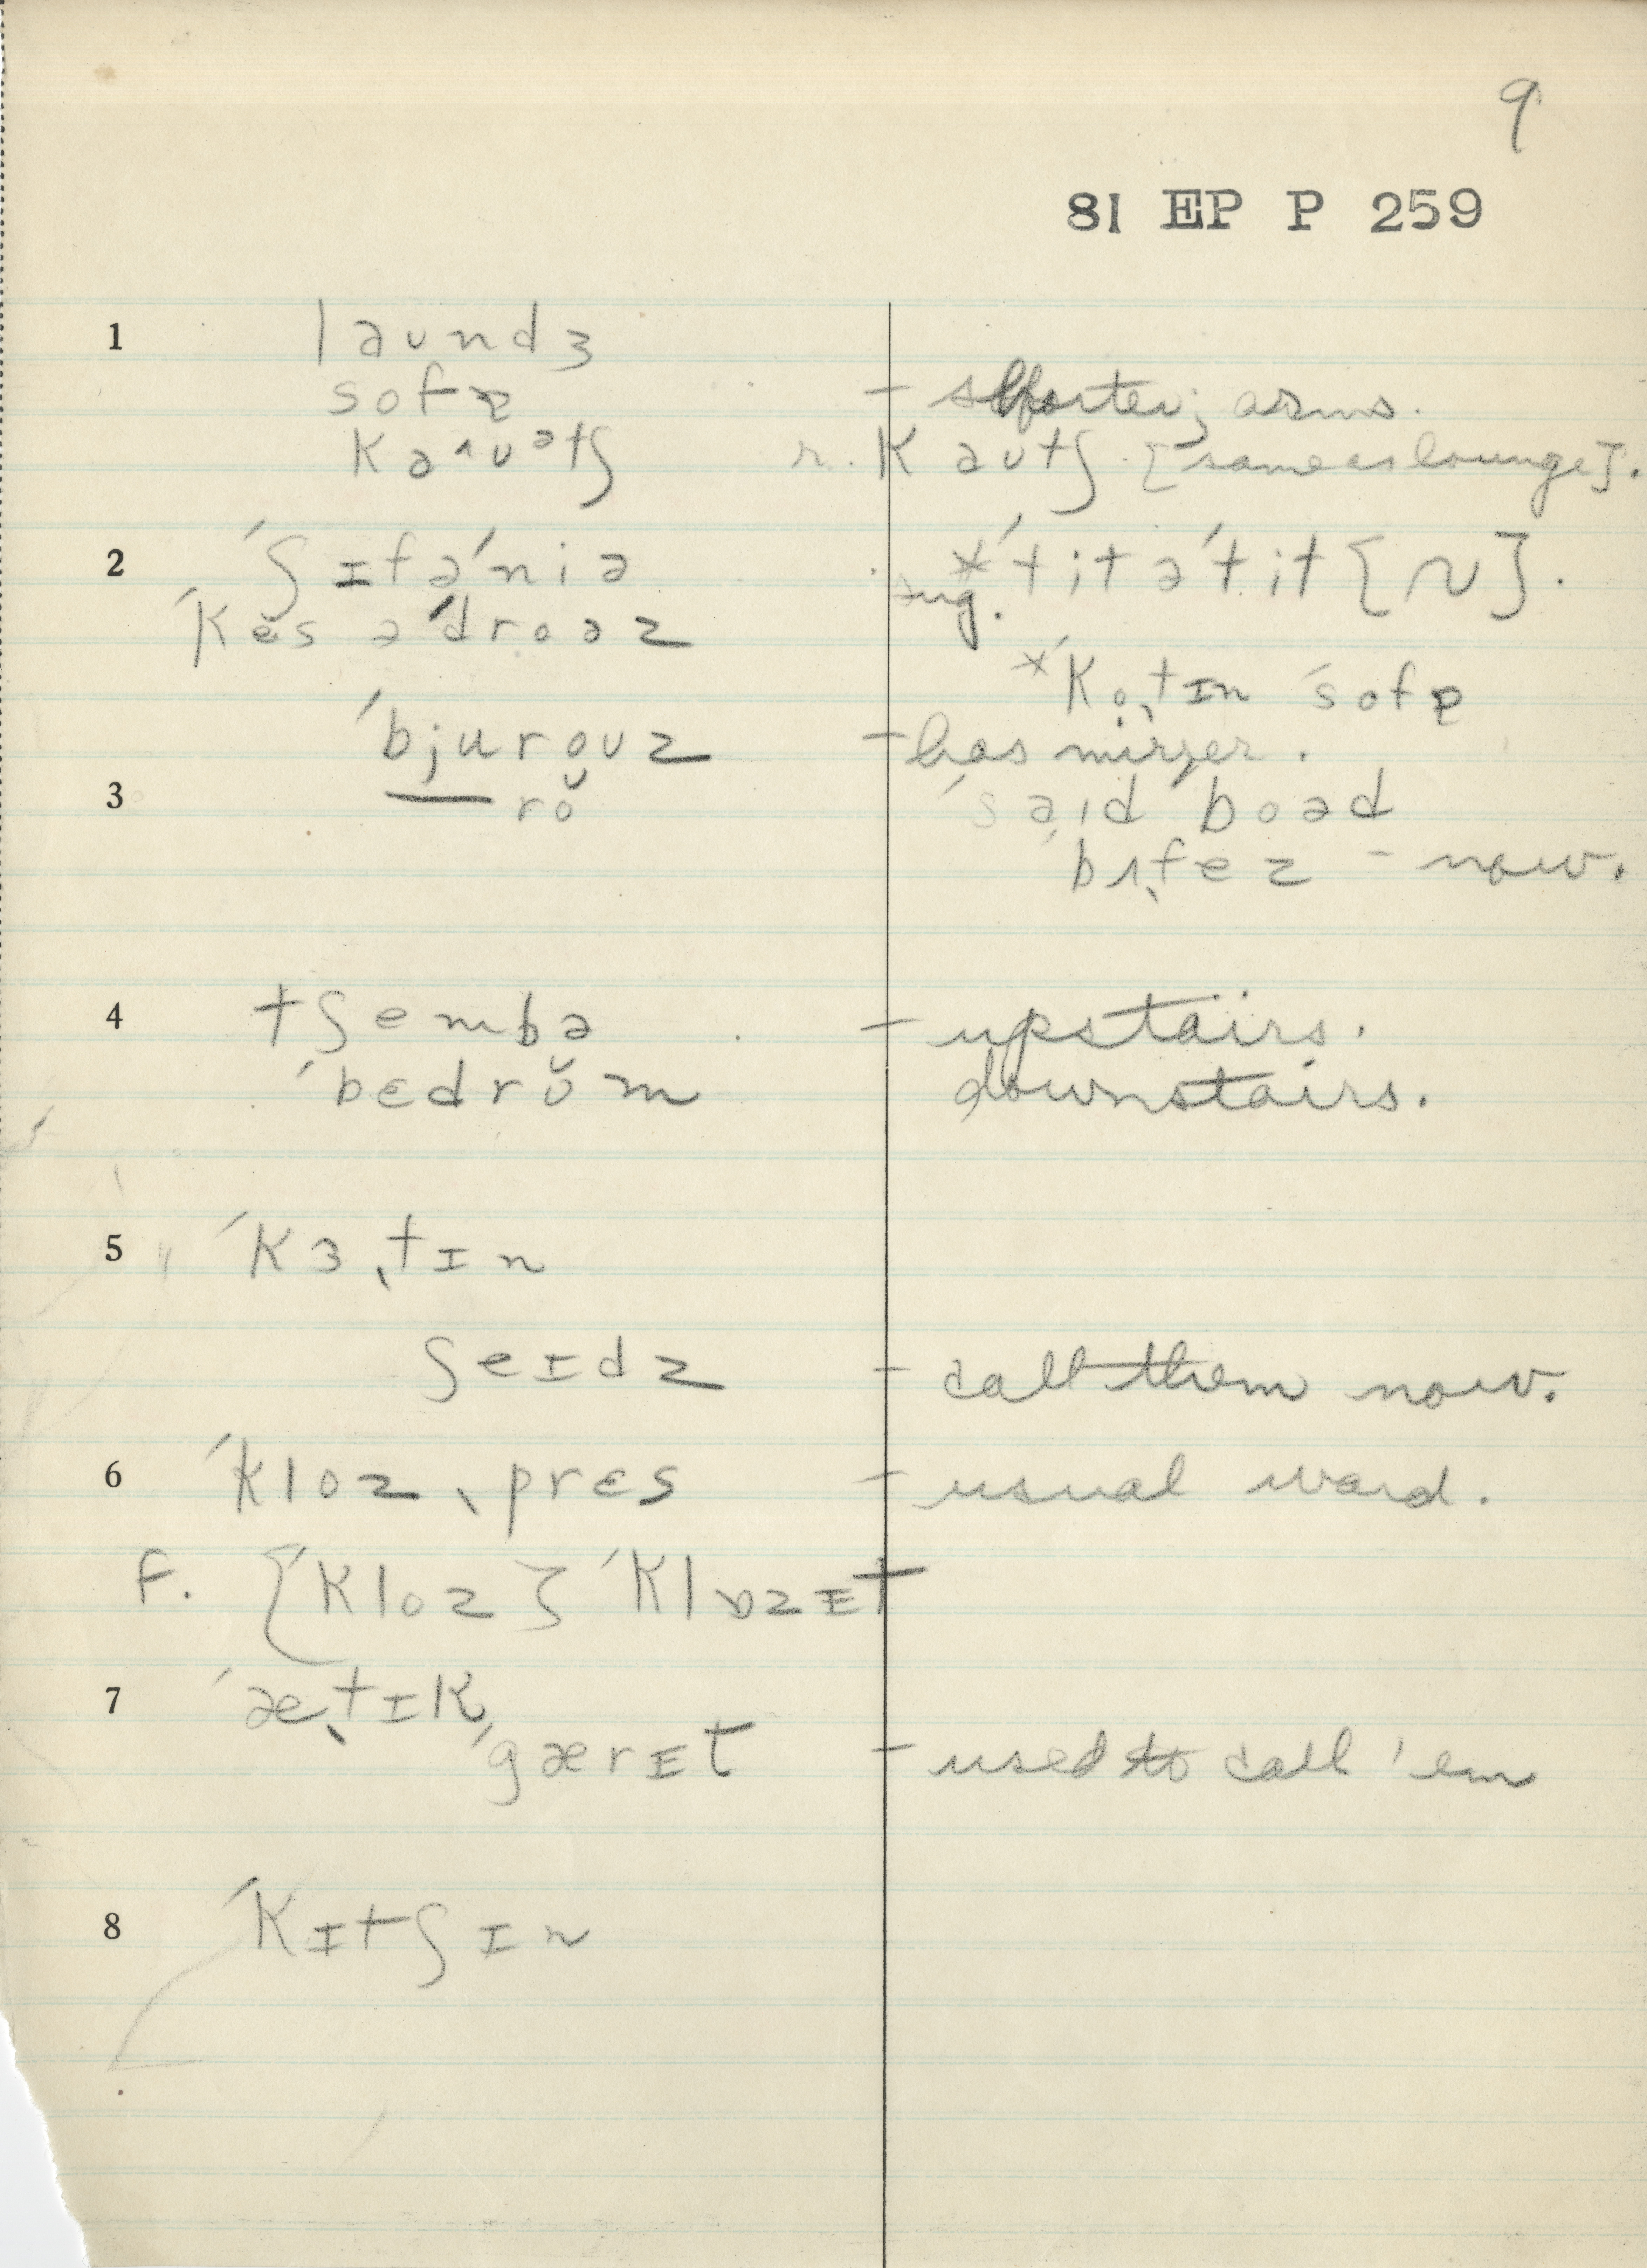 9
81 EP P 259
1 laundʒ
sofɐ - shorter; arms.
kaˆuᵊtʃ r. kautʃ [same as lounge].
2 ˈʃɪfəˈniə *ˈtitəˈtit {N}.
ˈkes əˈdroəz sug.
*ˈkoˎtɪn ˈsofɐ
ˈbjurouz - has mirrer.
3 — rŏ ˈsaɪd ˈboəd
ˈbʌˎfez - now.
4 tʃembə - upstairs.
ˈbedrŭm downstairs.
5 ˈkɜˎtɪn
ʃeɪdz - call them now.
6 ˈkloz ˎpres - usual word.
F. {ˈkloz} ˈklɒzɪt
7 ˈæˎtɪk
ˈgærɪt - used to call 'em
8 ˈkɪtʃɪn